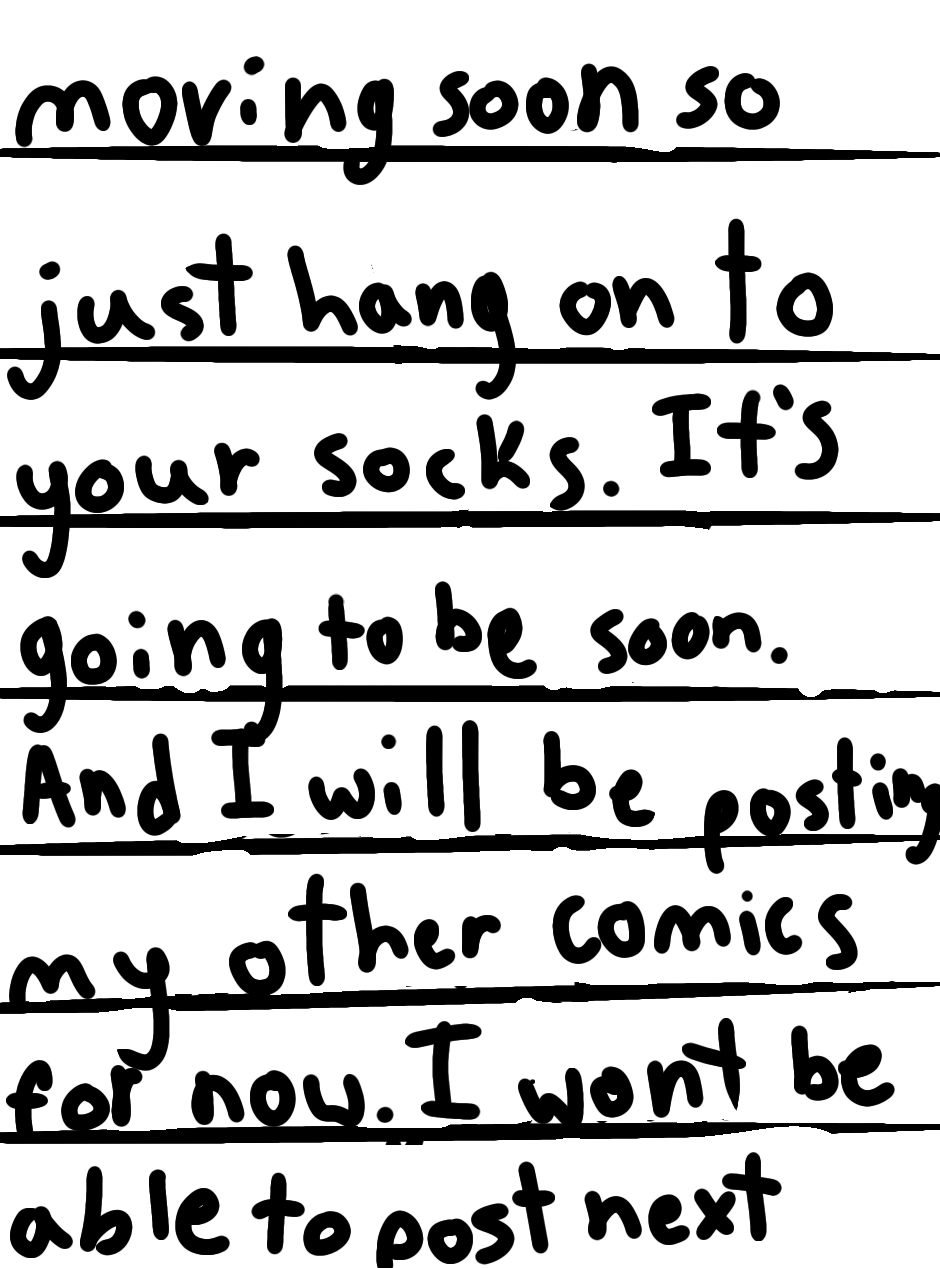 moving soon so
just hang on to
your socks. It's
going to be soon.
And I will be posting
my other comics
for now. I wont be
able to post next